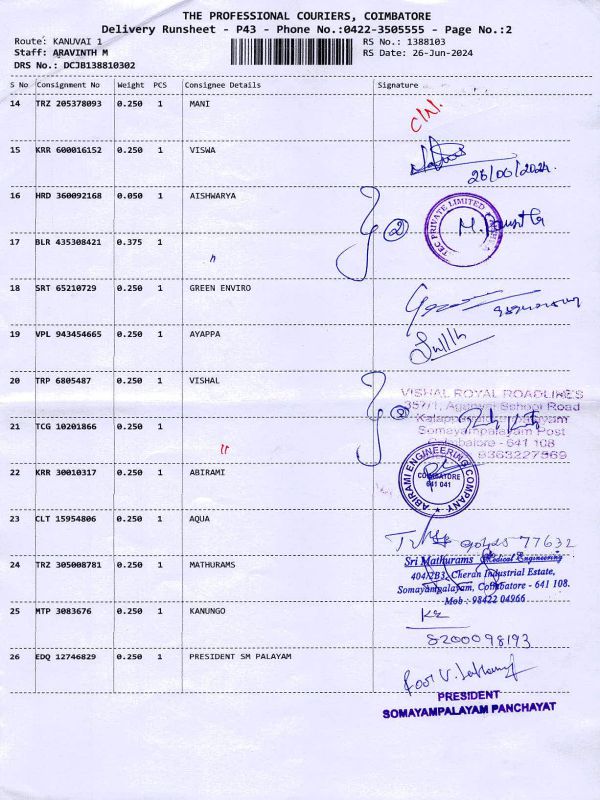 THE PROFESSIONAL COURIERS, COIMBATORE
Delivery Runsheet - P43 - Phone No.:0422-3505555 - Page No.:2
Route: KANUVAI 1 RS No.: 1388103
Staff: ARAVINTH M RS Date: 26-Jun-2024
DRS No.: DCJB138810302
S No Consignment No Weight PCS Consignee Details Signature
14 TRZ 205378093 0.250 1 MANI
15 KRR 600016152 0.250 1 VISWA
26/06/2024.
16 HRD 360092168 0.050 1 AISHWARYA
TEC PRIVATE LIMITED
2
17 BLR 435308421 0.375 1 "
18 SRT 65210729 0.250 1 GREEN ENVIRO
19 VPL 943454665 0.250 1 AYAPPA
20 TRP 6805487 0.250 1 VISHAL
VISHAL ROYAL ROADLINES
357/1, School Road
21 TCG 10201866 0.250 1 "
Somayampalayam Post
Coimbatore - 641 108
9363227569
22 KRR 30010317 0.250 1 ABIRAMI
ABIRAMI ENGINEERING COMPANY
COIMBATORE
641 041
23 CLT 15954806 0.250 1 AQUA
77632
24 TRZ 305008781 0.250 1 MATHURAMS
Sri Mathurams Medical Engineering
404/2B3, Cheran Industrial Estate,
Somayampalayam, Coimbatore - 641 108.
Mob : 98422 04966
25 MTP 3083676 0.250 1 KANUNGO
8200098193
26 EDQ 12746829 0.250 1 PRESIDENT SM PALAYAM
PRESIDENT
SOMAYAMPALAYAM PANCHAYAT